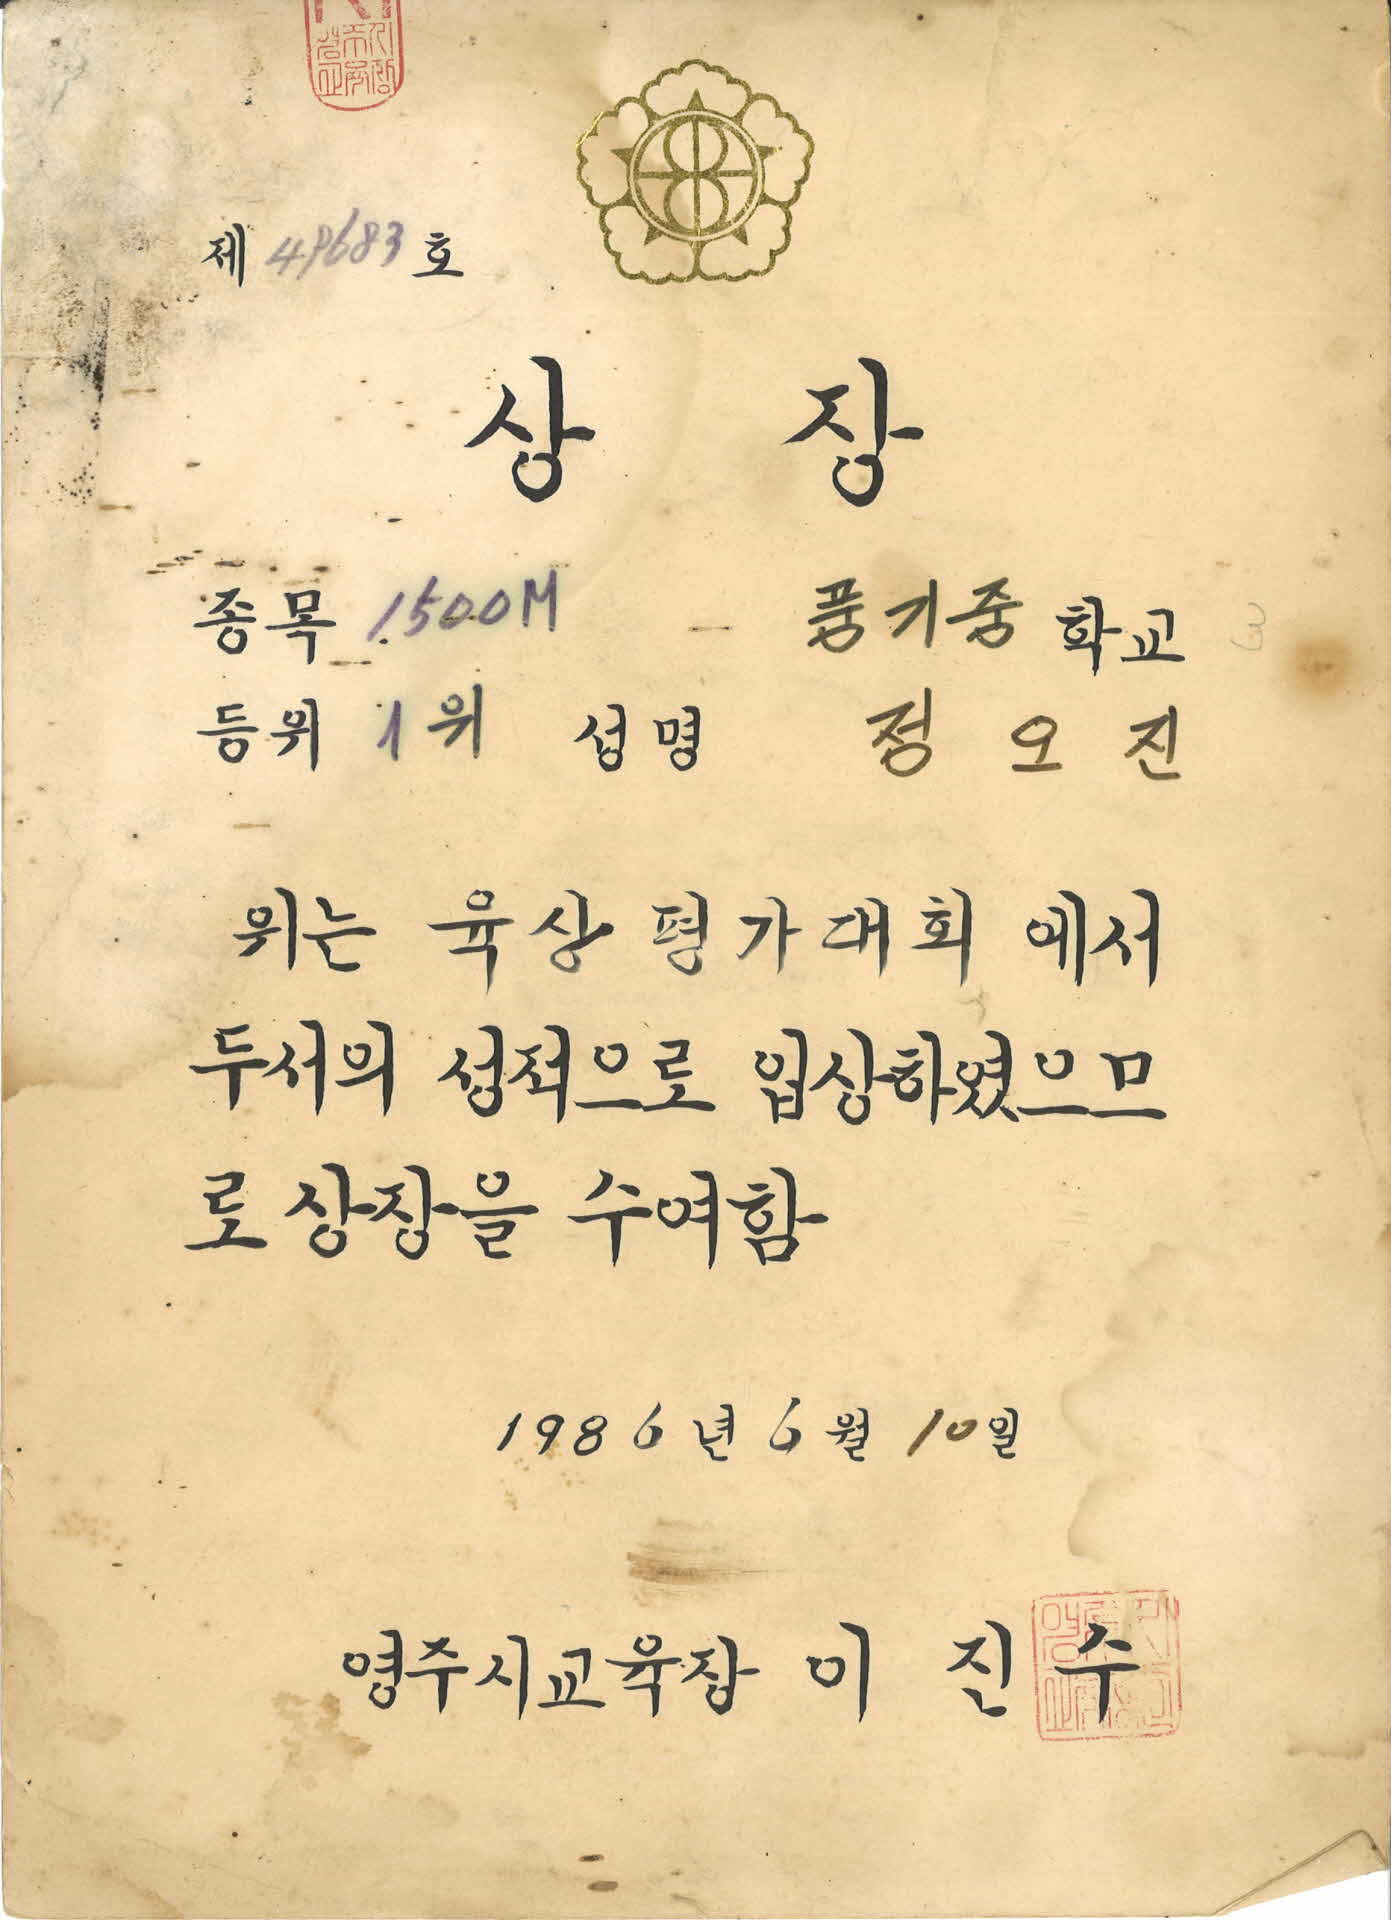 제 49683 호
상 장
종목 1500M 풍기중 학교
등위 1위 성명 정오진
위는 육상평가대회에서
두서의 성적으로 입상하였으므
로 상장을 수여함
1986년 6월 10일
영주시교육장 이진수